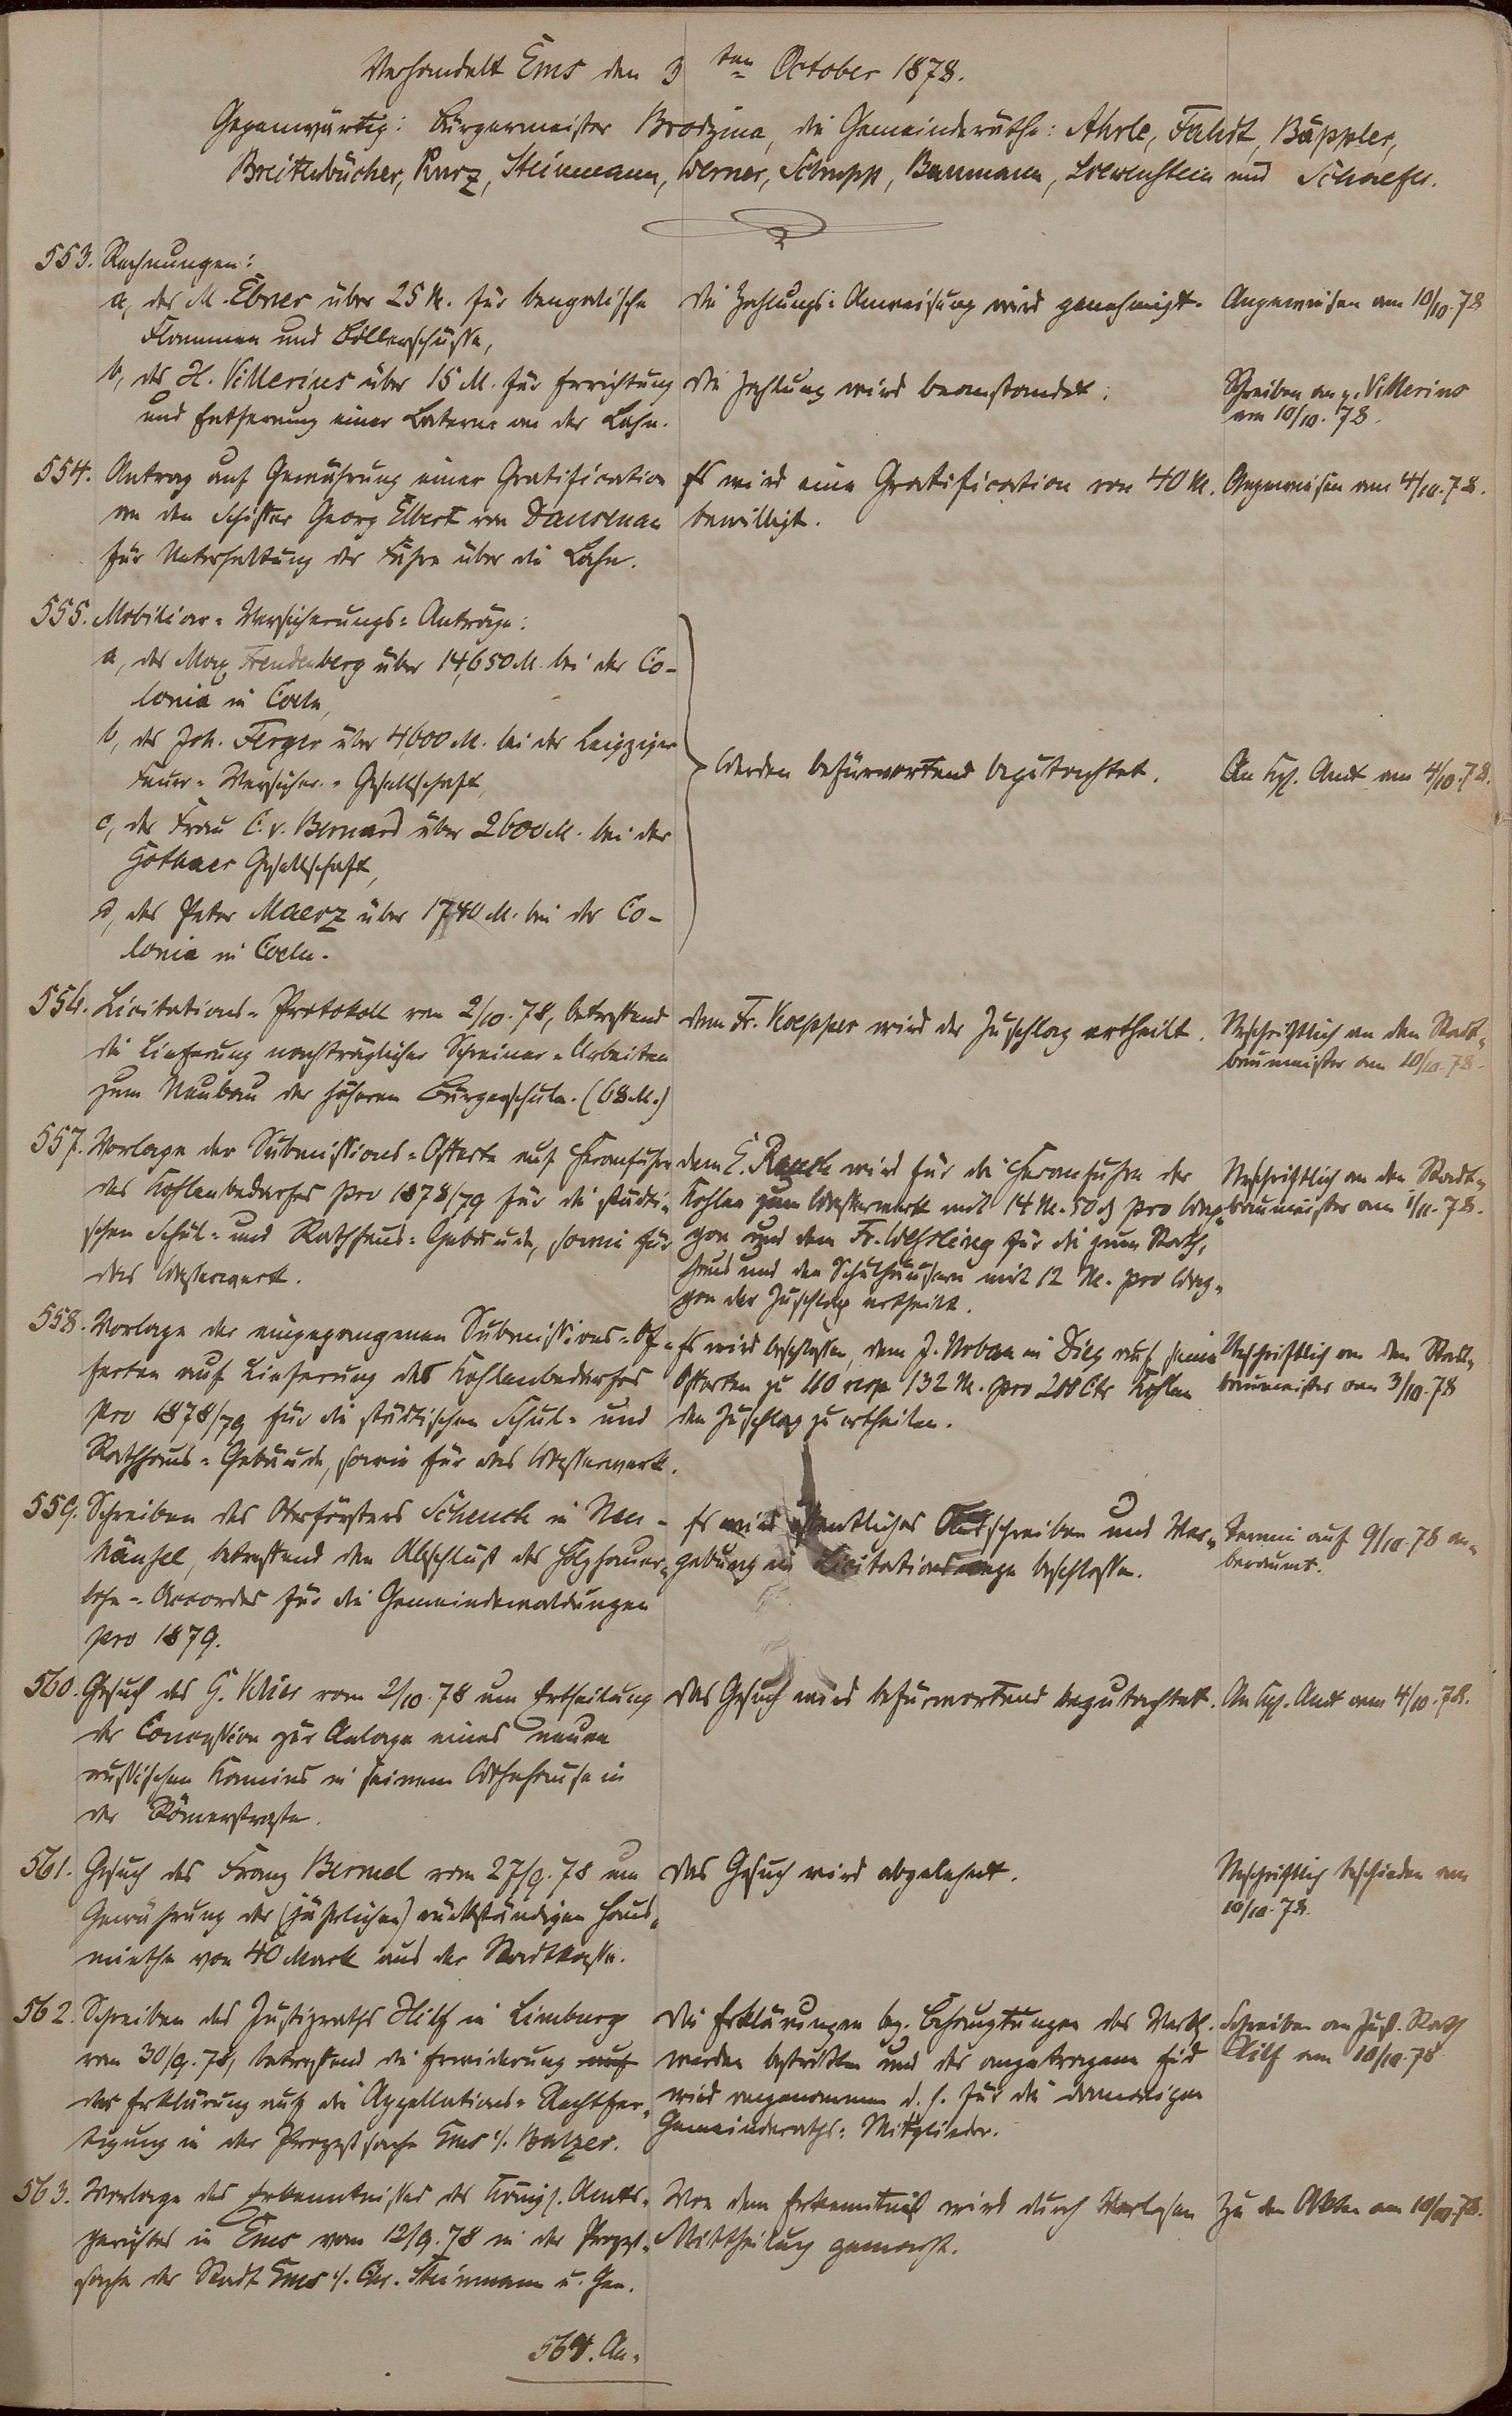 Verhandelt Ems den 3ten October 1878.
Gegenwärtig: Bürgermeister Brodzina, die Gemeinderäthe: Ahrle, Fahdt, Bäppler,
Breitenbücher, Kurz, Steinmann, Werner, Schupp, Baumann, Loewenstein und Schaefer.
553. Rechnungen:
a, des M. Ebner über 25 M. für bengalische
Flammen und Böllerschüsse,
Die Zahlungs-Anweisung wird genehmigt.
Angewiesen am 10/10.78
b, des H. Villerius über 15 M. für Errichtung
und Entfernung einer Laterne an der Lahn.
Die Zahlung wird beanstandet.
Schreiben an p. Villerius
am 10/10.78.
554. Antrag auf Gewährung einer Gratification
an den Schiffer Georg Elbert von Dausenau
für Unterhaltung der Fähre über die Lahn.
Es wird eine Gratification von 40 M.
bewilligt.
Angewiesen am 4/10.78.
555. Mobiliar-Versicherungs-Anträge:
a, des Max Freudenberg über 14,650 M. bei der Co-
lonia in Coeln,
b, des Joh. Ferger über 4,600 M. bei der Leipziger
Feuer-Versicher.-Gesellschaft,
c, der Frau C. v. Bernard über 2600 M. bei der
Gothaer Gesellschaft,
d, des Peter Maerz über 1740 M. bei der Co-
lonia in Coeln.
Werden befürwortend begutachtet.
An Kgl. Amt am 4/10.78.
556. Licitations-Protokoll vom 2/10.78, betreffend
die Lieferung nachträglicher Schreiner-Arbeiten
zum Neubau der höheren Bürgerschule. (68 M.)
Dem Fr. Koepper wird der Zuschlag ertheilt.
Abschriftlich an den Stadt-
baumeister am 10/10.78.
557. Vorlage der Submissions-Offerte auf Heranfuhr
des Kohlenbedarfes pro 1878/79 für die städti-
schen Schul- und Rathhaus-Gebäude, sowie für
das Wasserwerk.
Dem E. Rauch wird für die Heranfuhr der
Kohlen zum Wasserwerk mit 14 M. 50 ₰ pro Wag-
gon und dem Fr. Wehrling für die zum Rath-
haus und den Schulhäusern mit 12 M. pro Wag-
gon der Zuschlag ertheilt.
Abschriftlich an den Stadt-
baumeister am 1/11.78.
558. Vorlage der eingegangenen Submissions-Of-
ferten auf Lieferung des Kohlenbedarfes
pro 1878/79 für die städtischen Schul- und
Rathhaus-Gebäude, sowie für das Wasserwerk.
Es wird beschlossen, dem J. Urban in Diez auf seine
Offerten zu 110 resp. 132 M. pro 200 Ctr Kohlen
den Zuschlag zu ertheilen.
Abschriftlich an den Stadt-
baumeister am 3/10.78
559. Schreiben des Oberförsters Schenck in Neu-
häusel, betreffend den Abschluß des Holzhauer-
lohn-Accordes für die Gemeindewaldungen
pro 1879.
Es wird öffentliches Ausschreiben und Ver-
gebung im Licitationswege beschlossen.
Termin auf 9/10.78 an-
beraumt.
560. Gesuch des G. vom 2/10.78 um Ertheilung
der Concession zur Anlage eines neuen
russischen Kamins in seinem Wohnhause in
der Römerstraße.
Das Gesuch wird befürwortend begutachtet.
An Kgl. Amt am 4/10.78.
561. Gesuch des Franz Bermel vom 27/9.78 um
Gewährung der (jährlichen) rückständigen Haus-
miethe von 40 Mark aus der Stadtkasse.
Das Gesuch wird abgelehnt.
Abschriftlich beschieden am
10/10.78.
562. Schreiben des Justizraths Hilf in Limburg
vom 30/9.78, betreffend die Erwiderung auf
der Erklärung auf die Appellations-Rechtfer-
tigung in der Prozeßsache Ems ./. Balzer.
Die Erklärungen bez. Behauptungen des Verkl.
werden bestritten und der angetragene Eid
wird angenommen d. h. für die damaligen
Gemeinderaths-Mitglieder.
Schreiben an Just. Rath
Hilf am 10/10.78
563. Vorlage des Erkenntnisses des Königl. Amts-
gerichtes in Ems vom 12/9.78 in der Prozeß-
sache der Stadt Ems ./. Chr. Steinmann u. Gen.
Von dem Erkenntniß wird durch Verlesen
Mittheilung gemacht.
Zu den Akten am 10/10.78.
564. An-